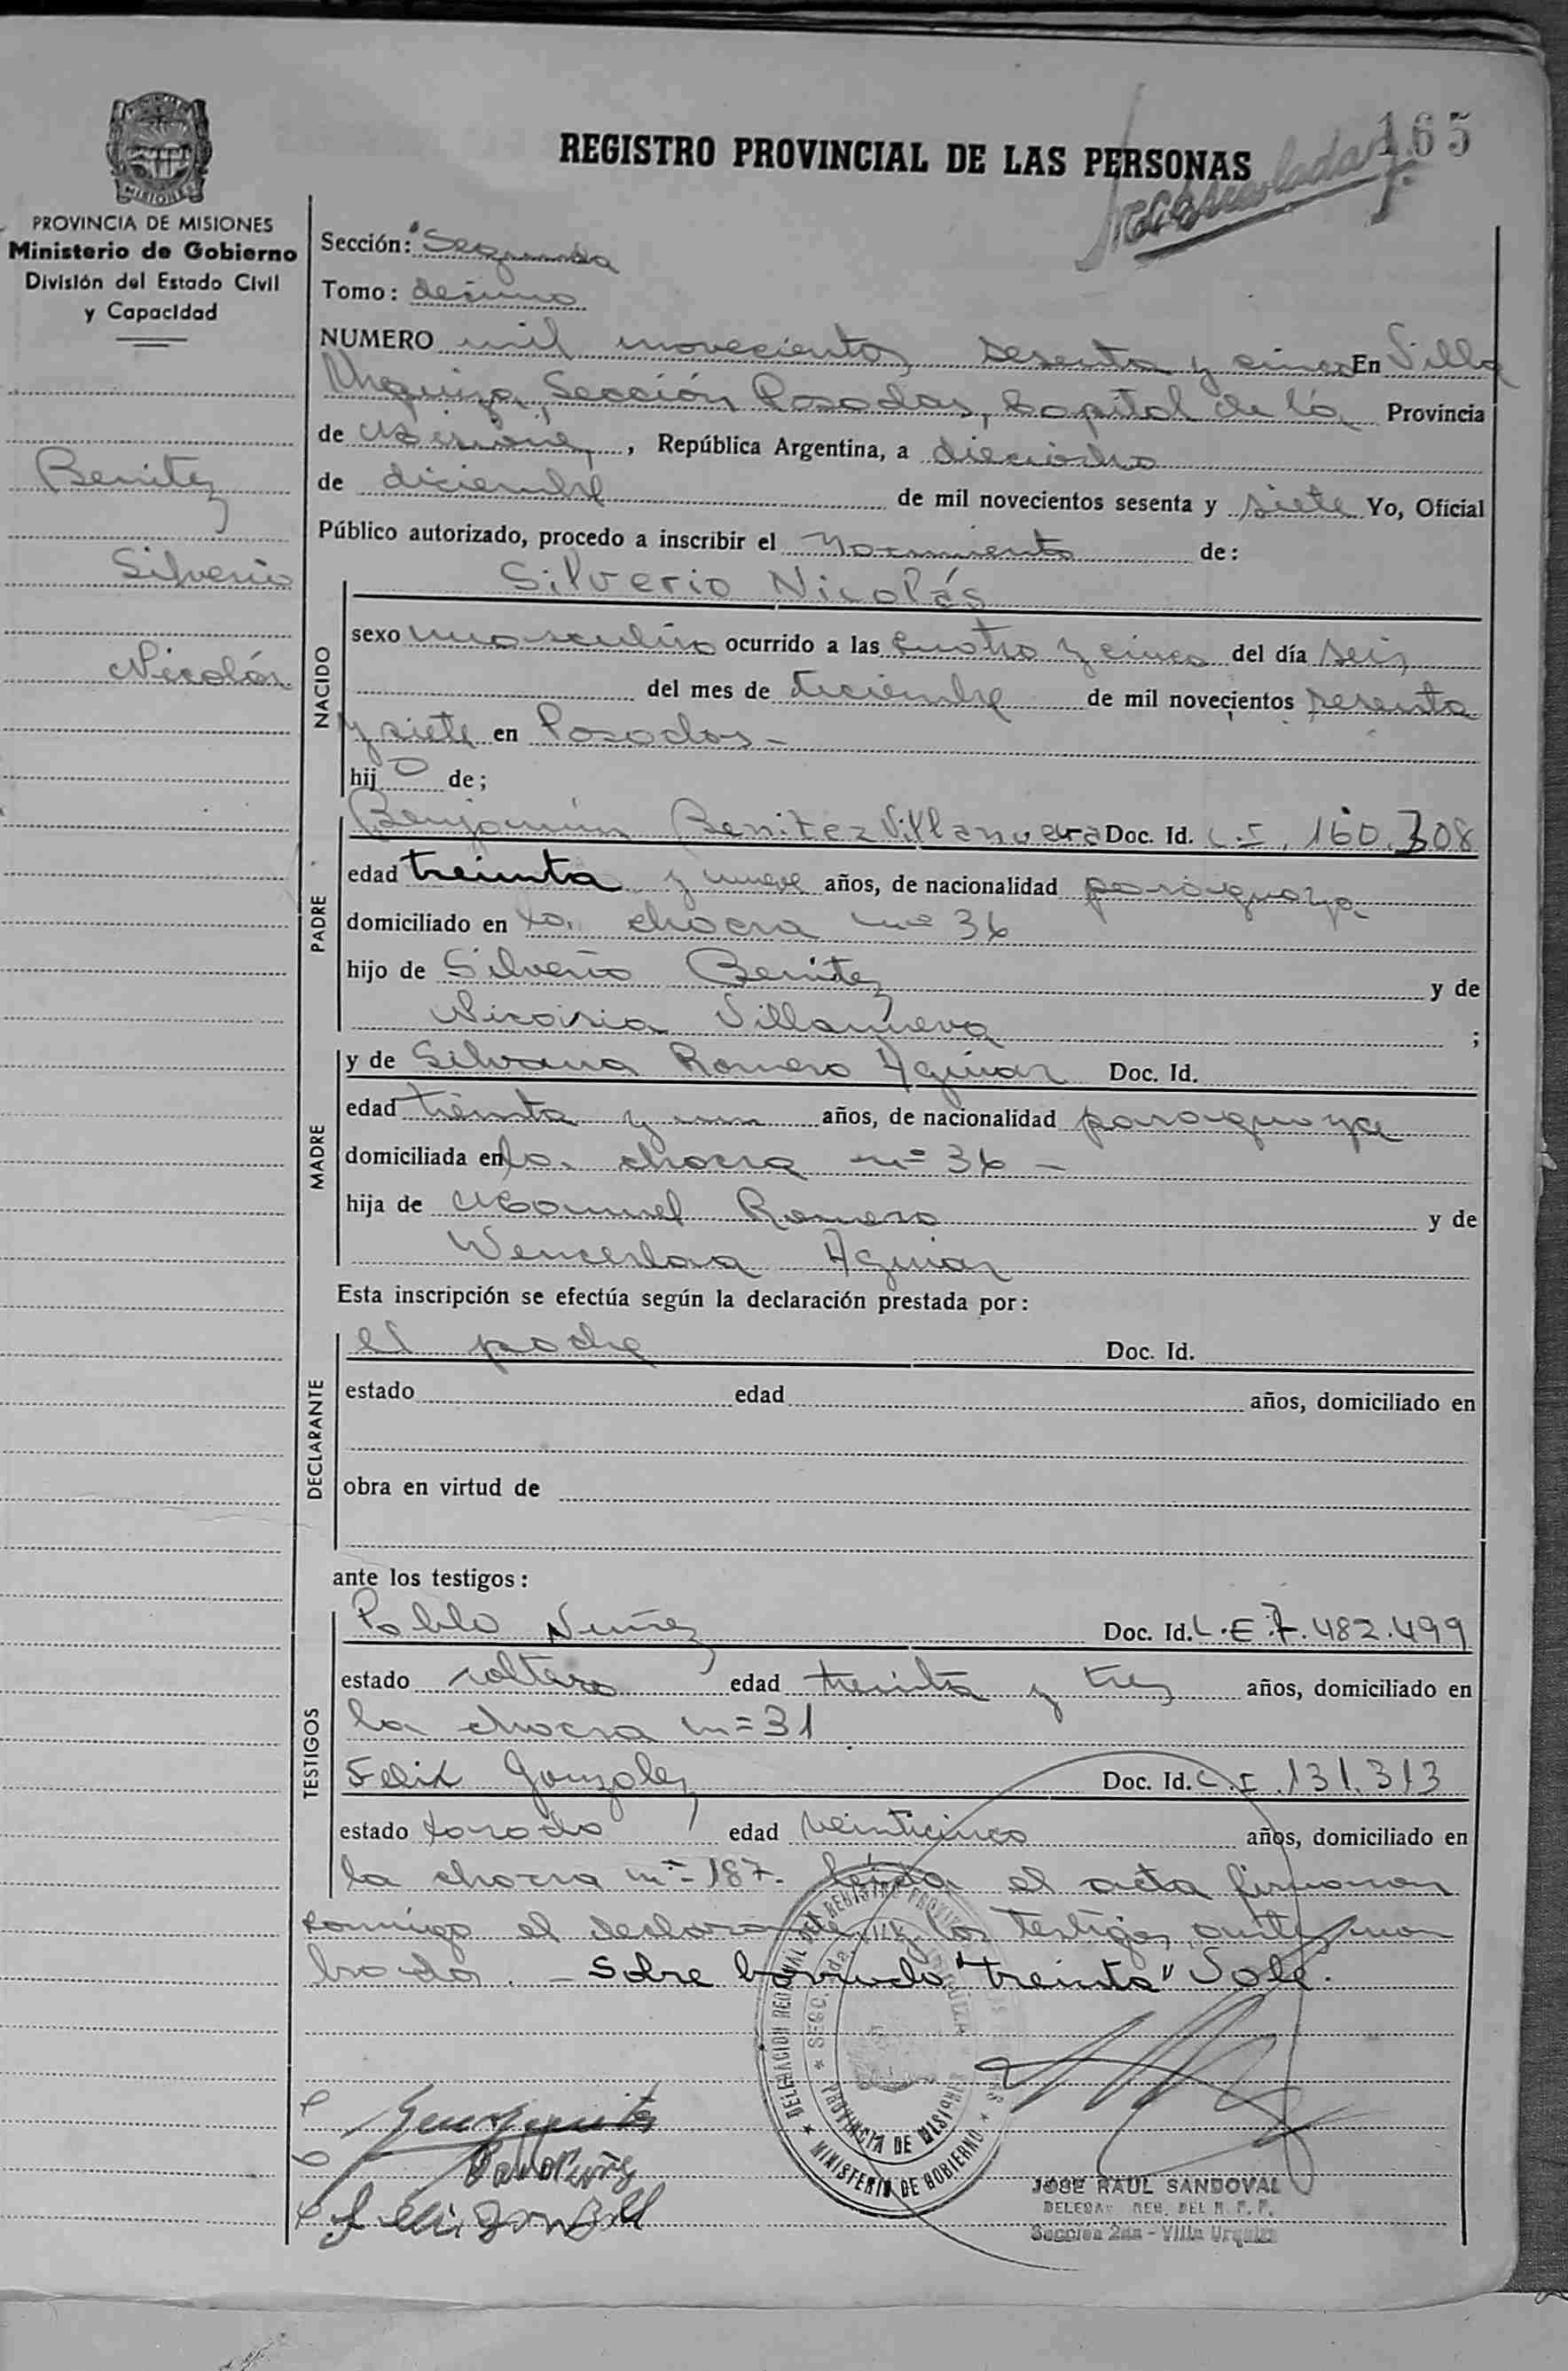 165
REGISTRO PROVINCIAL DE LAS PERSONAS
MISIONES
PROVINCIA DE MISIONES
Ministerio de Gobierno
División del Estado Civil
y Capacidad
Benitez
Silverio
Nicolás
Sección: Segunda
Tomo: decimo
NUMERO mil novecientos sesenta y cinco En Villa
Urquiza, Sección Posadas, Capital de la Provincia
de Misiones, República Argentina, a dieciocho
de diciembre de mil novecientos sesenta y siete Yo, Oficial
Público autorizado, procedo a inscribir el Nacimiento de:
NACIDO
Silverio Nicolás
sexo masculino ocurrido a las cuatro y cinco del día seis
del mes de diciembre de mil novecientos sesenta
y siete en Posadas -
hijo de;
PADRE
Benjamín Benitez Villanueva Doc. Id. C.I. 160.308
edad treinta y nueve años, de nacionalidad paraguaya
domiciliado en la chacra nº 36
hijo de Silverio Benitez y de
Villanueva ;
MADRE
y de Silvana Romero Aguiar Doc. Id.
edad treinta y un años, de nacionalidad paraguaya
domiciliada en la chacra nº 36 -
hija de Manuel Romero y de
Wenceslaa Aguiar
Esta inscripción se efectúa según la declaración prestada por:
DECLARANTE
el padre Doc. Id.
estado edad años, domiciliado en
obra en virtud de
ante los testigos:
TESTIGOS
Pablo Nuñez Doc. Id. L.E 7.482.499
estado soltero edad treinta y tres años, domiciliado en
la chacra nº 31
Felix Gonzalez Doc. Id. C.I. 131.313
estado casado edad veinticinco años, domiciliado en
la chacra nº 187. Leída el acta firmaron
conmigo el declarante y los testigos antes nom
brados. - Sobre borrado "treinta" Vale.
DELEGACION REGIONAL DEL REGISTRO PROVINCIAL DE LAS PERSONAS
SECC. 2da. VILLA URQUIZA
PROVINCIA DE MISIONES
MINISTERIO DE GOBIERNO
JOSE RAUL SANDOVAL
DELEGAD. REG. DEL R. P. P.
Sección 2da - Villa Urquiza